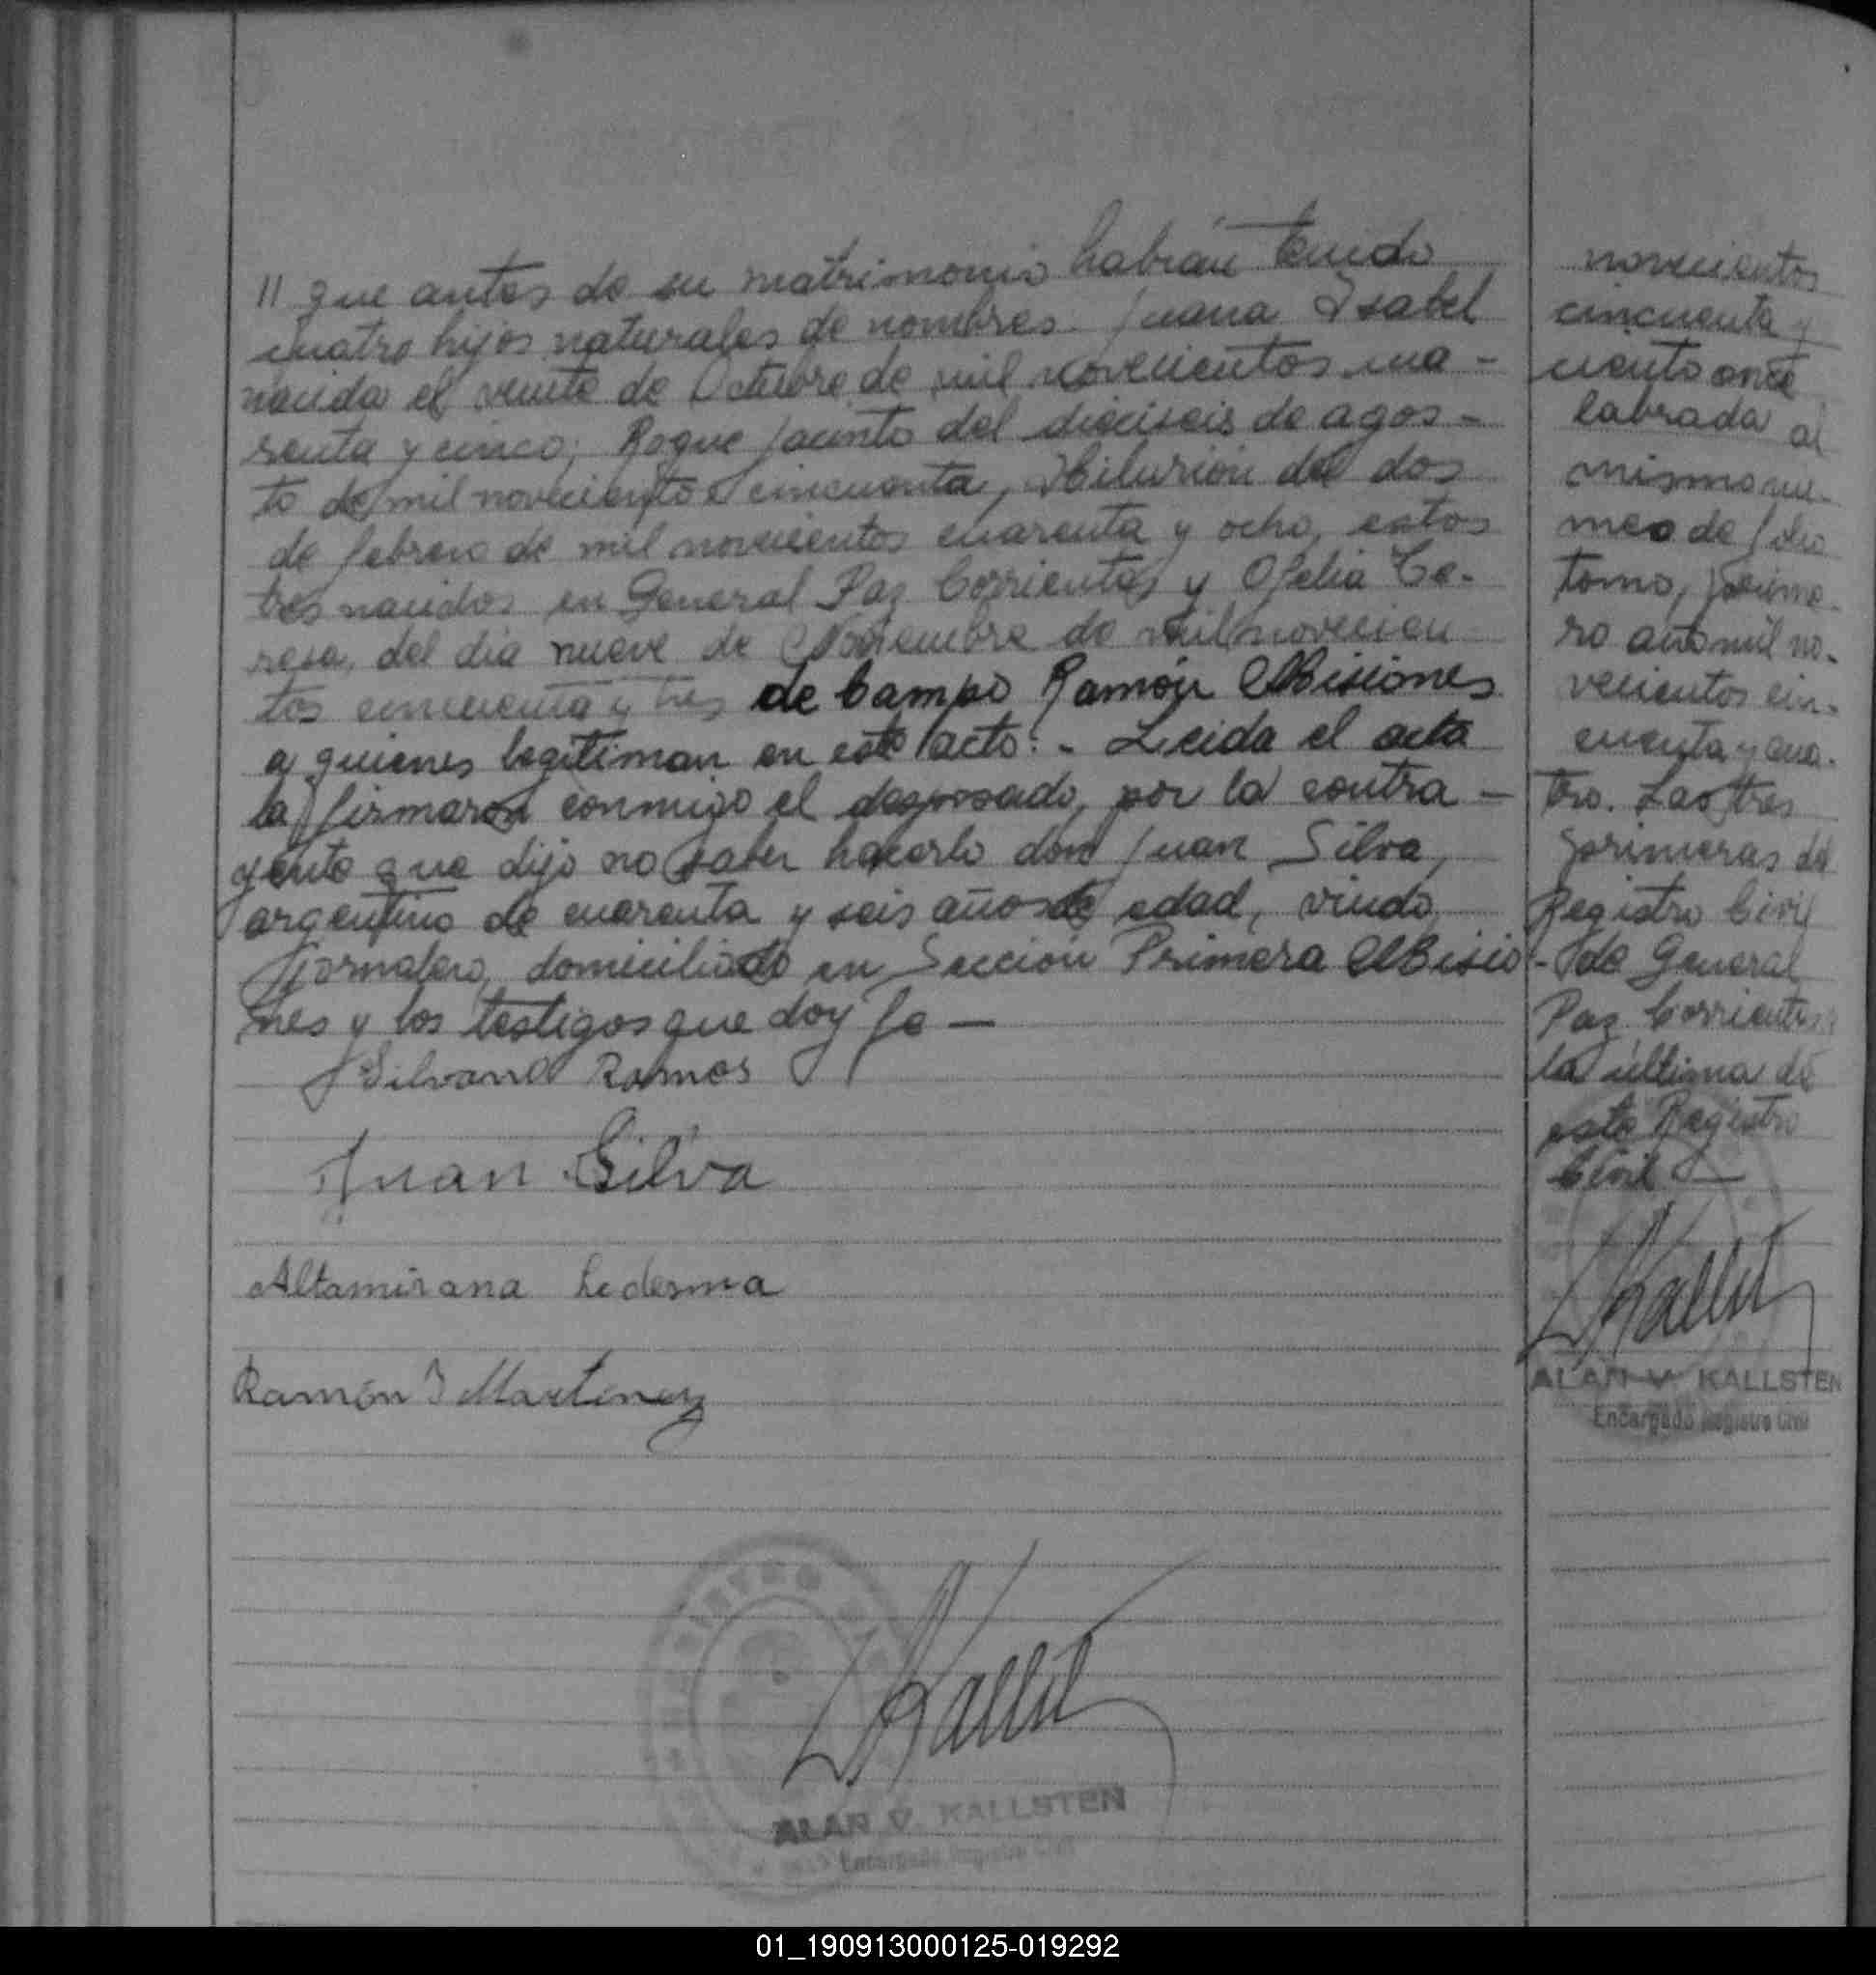 // que antes de su matrimonio habían tenido
cuatro hijos naturales de nombres. Juana Isabel
nacida el veinte de Octubre de mil novecientos cua-
renta y cinco; Roque Jacinto del dieciseis de agos-
to de mil novecientos cincuenta, Hilurión del dos
de febrero de mil novecientos cuarenta y ocho, estos
tres nacidos en General Paz Corrientes y Ofelia Te-
resa, del dia nueve de Noviembre de mil novecien
tos cincuenta y tres de Campo Ramón Misiones
a quienes legitiman en este acto:- Leida el acta
la firmaron conmigo el desposado, por la contra-
yente que dijo no saber hacerlo don Juan Silva,
argentino de cuarenta y seis años de edad, viudo,
jornalero, domiciliado en Sección Primera Misio-
nes y los testigos que doy fe —
Silvano Ramos
Juan Silva
Altamirana Ledesma
Ramón J Martinez
ALAN V. KALLSTEN
Encargado Registro Civil
novecientos
cincuenta y
ciento once
labrada al
mismo nu-
mero de folio
tomo, prime-
ro año mil no-
vecientos cin-
cuenta y cua-
tro. Las tres
primeras del
Registro Civil
de General
Paz Corrientes
la última de
este Registro
Civil —
ALAN V. KALLSTEN
Encargado Registro Civil
01_190913000125-019292